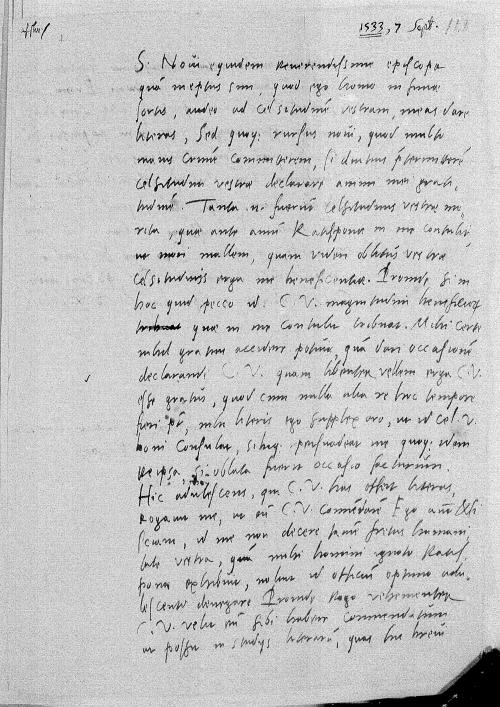 1533, 7 Sept.
S. Novi equidem Reverendissime episcope
quā ineptus sim, quod ego homo infimae
sortis, audeo ad celsitudinē vestram, meas dare
literas, Sed quoq. rursus novi, quod multo
maius crimē committerem, si diutius ptermitterē
celsitudini vestrae declarare animi mei grati-
tudinē. Tanta n. fuerūt celsitudinis vestrae me-
rita, quae ante annū Ratisponae in me contulit
ut mori mallem, quam videri oblitus vestrae
celsitudinis erga me beneficentiae. Proinde si in
hoc quid pecco id C. V. magnitudini beneficior
quae in me contulit tribuat. Mihi certe
nihil gratius accidere potuit, quā dari occasionē
declarandi C. V. quam libenter vellem erga C. V.
esse gratus, quod cum nulla alia re hoc tempore
fieri pōt, nisi literis ego supplex oro, ut id cel. V.
boni consulat, sibiq. persuadeat me quoq. idem
reipsa, si oblata fuerit occasio facturum.
Hic adulescens, qui C. V. has offert literas,
rogavit me, ut eū C. V. commēdarē Ego
sciam, id me non decere tamē fretus humani
tate vestra, quā mihi homini ignoto Ratis
ponae exhibuit, nolui id officiū optimo adu-
lescenti denegare Proinde rogo vehementer
C. V. velit eū sibi habere commendatum
ut possit in studijs literarū, quas hic